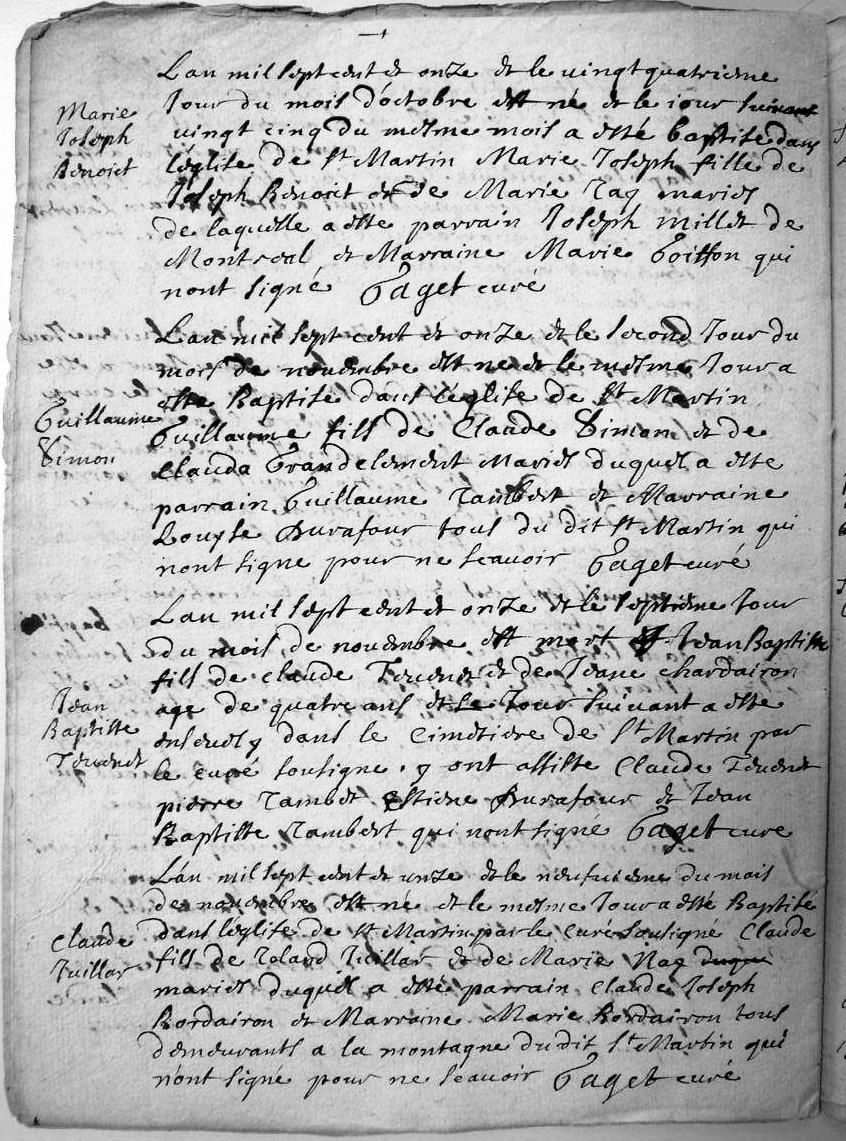 Marie
Joseph
Benoict
Lan mil sept cent et onze et le vingt quatrieme
Jour du mois d'octobre est né et le jour suivant
vingt cinq du mesme mois a esté baptisé dans
leglise de St Martin Marie Joseph fille de
Joseph Benoict et de Marie mariés
de laquelle a este parrain Joseph Millet de
Montreal et Marraine Marie qui
nont signé Gaget curé
Guillaume
Simon
Lan mil sept cent et onze et le second Jour du
mois de novembre est ne et le mesme Jour a
este Baptisé dans leglise de St Martin
Guillaume fils de Claude Simon et de
Clauda Grandclement Mariés duquel a este
parrain Guillaume Tambert et Marraine
Louyse Durafour tous du dit St Martin qui
nont signe pour ne scavoir Gaget curé
Jean
Baptiste
Tevenet
Lan mil sept cent et onze et le septieme Jour
du mois de novembre est mort Jean Baptiste
fils de Claude Tevenet et de Jeane chardairon
age de quatre ans et le Jour suivant a este
ensevely dans le cimetiere de St Martin par
le curé sousigne . y ont assiste Claude Tevenet
pierre Tambet Estiene Durafour et Jean
Baptiste Tambert qui nont signé Gaget cure
Claude
Juillar
Lan mil sept cent et unze et le neufvieme du mois
de novembre est né et le mesme Jour a esté Baptisé
dans leglise de St Martin par le Curé Sousigné Claude
fils de Roland Juillar et de Marie
mariés duquel a esté parrain Claude Joseph
Bordairon et Marraine Marie Bordairon tous
demeurants a la montagne du dit St Martin qui
n'ont signé pour ne scavoir Gaget curé